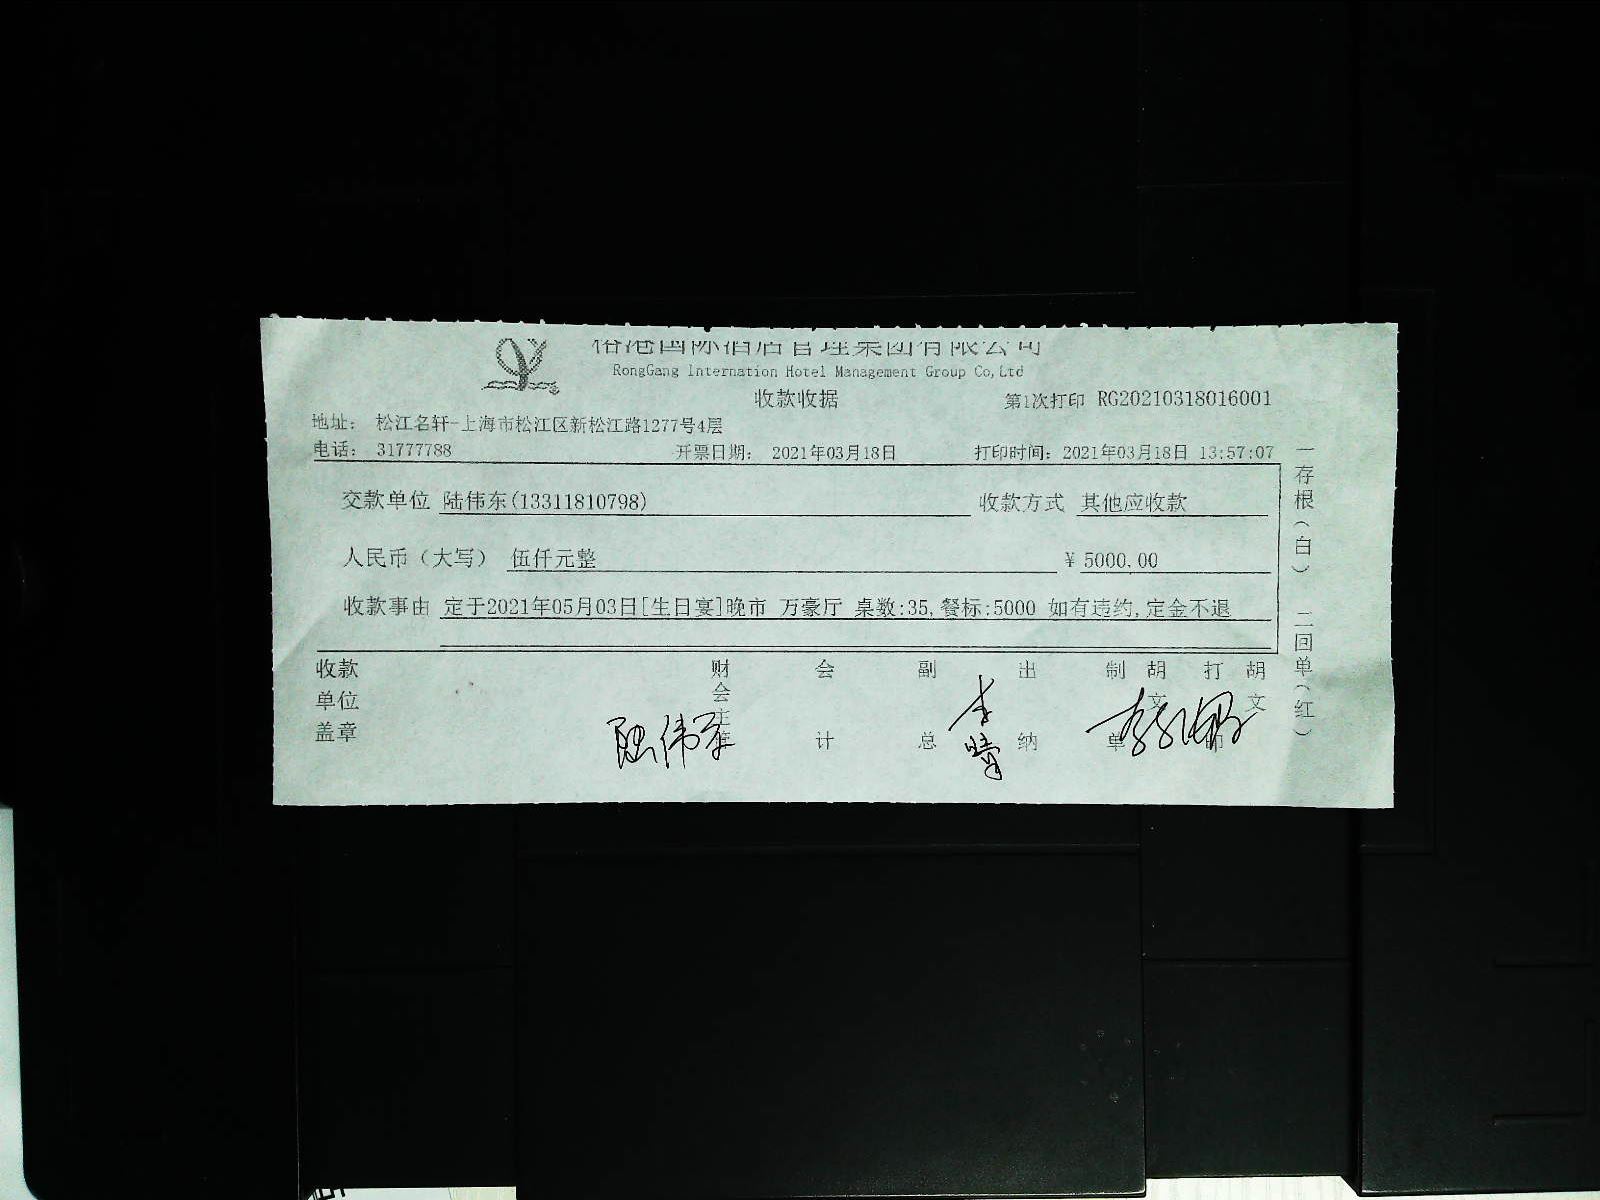 榕港国际酒店管理集团有限公司
RongGang International Hotel Management Group Co,Ltd
收款收据
第1次打印 RG20210318016001
地址： 松江名轩-上海市松江区新松江路1277号4层
电话： 31777788 开票日期： 2021年03月18日 打印时间：2021年03月18日 13:57:07
交款单位 陆伟东(13311810798) 收款方式 其他应收款
人民币（大写） 伍仟元整 ￥5000.00
收款事由 定于2021年05月03日[生日宴]晚市 万豪厅 桌数:35,餐标:5000 如有违约,定金不退
收款单位盖章
财会主管
会计
副总
出纳
制单
胡文
打印
胡文
陆伟东
李
一存根(白) 二回单(红)